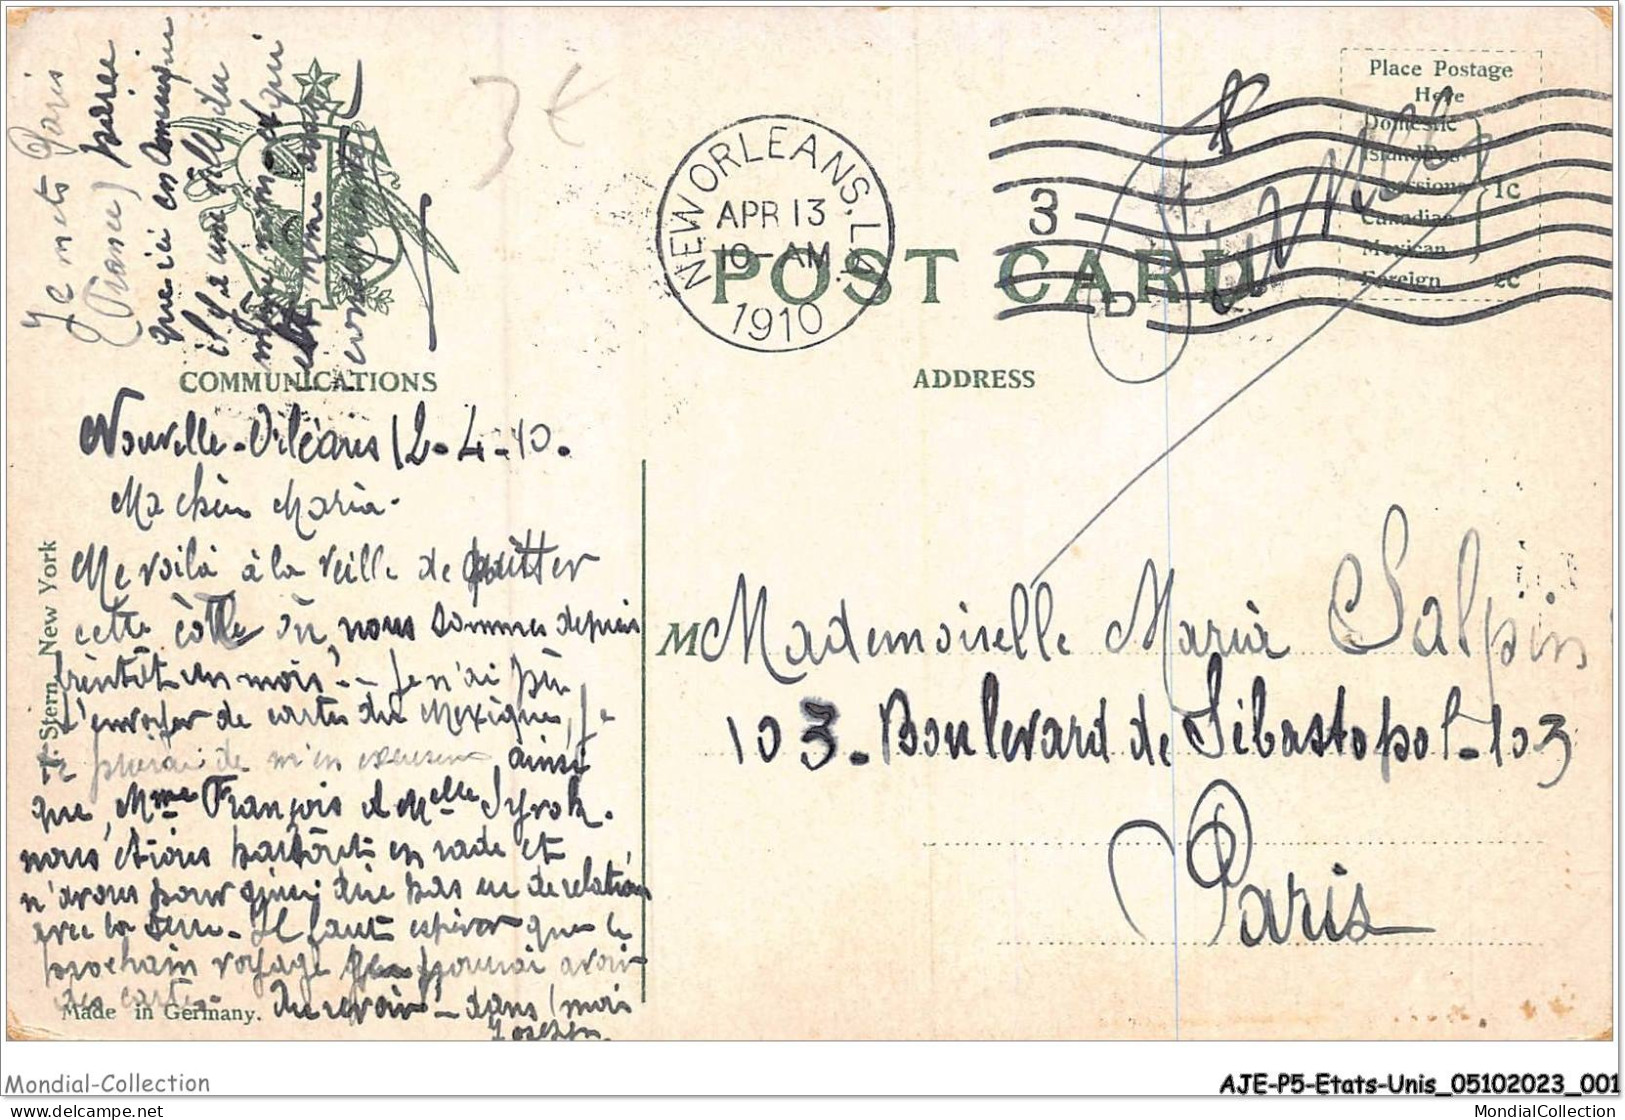 Je mets Paris
(France) parce
que ici en Amérique
il y a une ville du
même nom et qui
est même assez
conséquente
3 €
NEW ORLEANS, LA.
APR 13
10-AM
1910
3
D
POST CARD
Place Postage
Here
Domestic
Island Pos-
sessions
Canadian
Mexican
1c
Foreign 2c
COMMUNICATIONS
ADDRESS
Nouvelle-Orléans 12-4-10.
Ma chère Maria.
Me voilà à la veille de quitter
cette côte où nous sommes depuis
bientôt un mois. Je n'ai pu
t'envoyer de cartes du Mexique, je
te prierai de m'en excuser ainsi
que Mme François et Melle Syrok.
nous étions partout en rade et
n'avons pour ainsi dire pas eu de relations
avec la terre. Il faut espérer que le
prochain voyage je pourrai avoir
des cartes. Au revoir! dans 1 mois
Joseph
F. Stern, New York
Made in Germany.
M Mademoiselle Maria Salpin
103. Boulevard de Sébastopol-103
Paris
Mondial-Collection
AJE-P5-Etats-Unis_05102023_001
https://www.delcampe.net/fr/collections/store/MONDIALCOLLECTION
MondialCollection